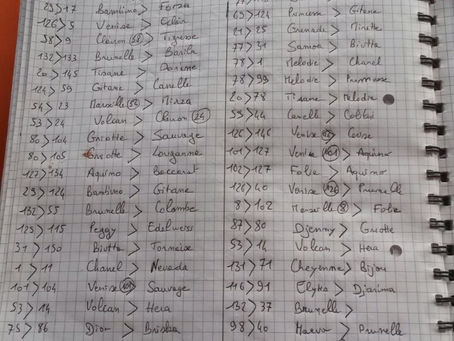 29 > 17 Bambino > Forza
126 > 5 Venise > Eclair
58 > 9 Clairon (58) > Tigresse
132 > 133 Brunelle > Bonita
20 > 145 Tisane > Dorienne
124 > 59 Gitane > Canelle
54 > 23 Marseille > Mirza
53 > 24 Volcan > (24)
80 > 104 Griotte > Sauvage
80 > 105 Griotte > Louganne
127 > 134 Aquino > Baccarat
29 > 124 Bambino > Gitane
132 > 55 Brunelle > Colombe
125 > 115 Peggy > Edelweiss
31 > 150 Biutta > Torneise
1 > 11 Chanel > Nevada
101 > 104 Venise (101) > Sauvage
53 > 14 Volcan > Hera
75 > 86 Dior > Briska
65 > 124 Princesse > Gitane
21 > 25 Grenade > Minette
77 > 31 Samba > Biutta
78 > 1 Melodie > Chanel
78 > 99 Melodie >
20 > 78 Tisane > Melodie
59 > 44 Canelle >
126 > 146 Venise >
101 > 127 Venise (101) > Aquino
102 > 127 Folie > Aquino
126 > 40 Venise (126) > Prunelle
8 > 102 Marseille (8) > Folie
87 > 80 Djenny > Griotte
53 > 14 Volcan > Hera
131 > 71 Cheyenne > Bijou
116 > 91 Elyka > Djarina
132 > 37 Brunelle >
98 > 40 Maeva > Prunelle